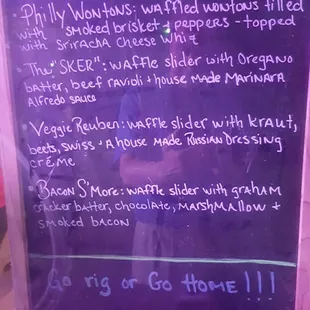 • Philly Wontons: waffled wontons filled
with smoked brisket + peppers - topped
with Sriracha Cheese Whiz
• The "SKER": waffle slider with Oregano
batter, beef ravioli + house made Marinara
Alfredo sauce
• Veggie Reuben: waffle slider with kraut,
beets, swiss + a house made Russian Dressing
créme
• Bacon S'More: waffle slider with graham
cracker batter, chocolate, marshmallow +
smoked bacon
Go rig or Go Home!!!